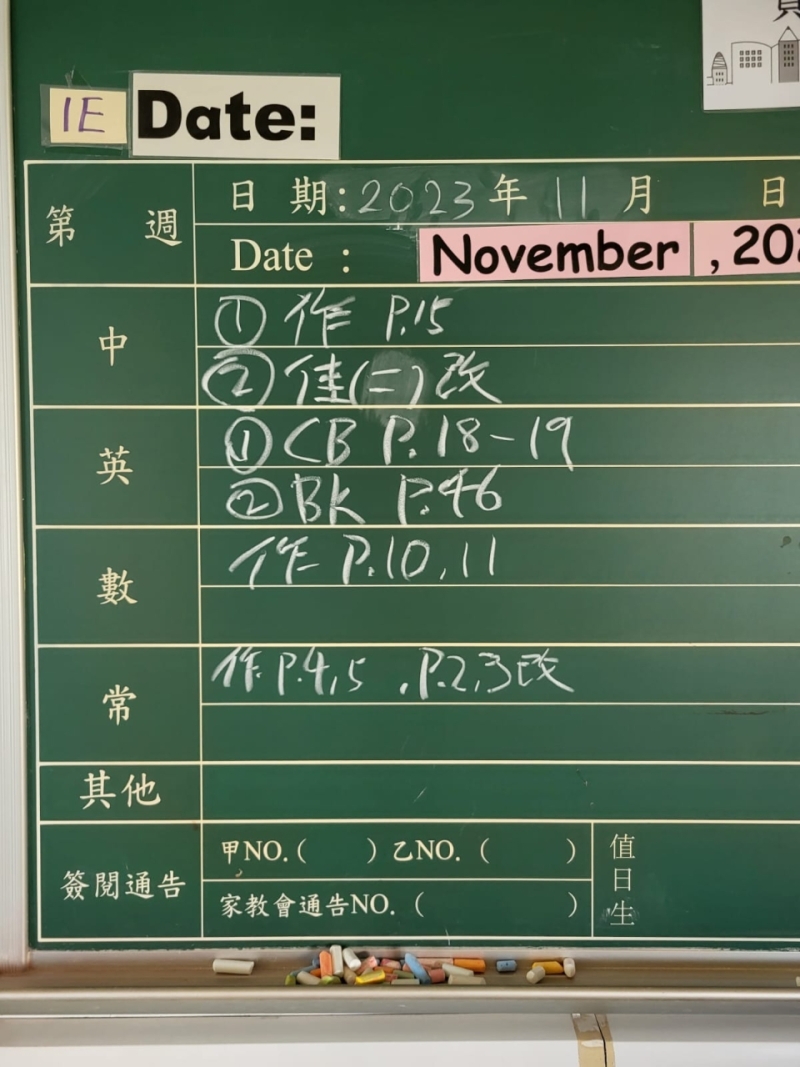 1E Date:
第 週
日 期:2023年11月 日
Date : November , 202
中
① 作 P.15
② 佳(二)改
英
① CB P.18-19
② BK P.46
數
作 P.10,11
常
作.P.4,5 .P.2,3改
其他
簽閱通告
甲NO.( ) 乙NO. ( )
家教會通告NO. ( )
值日生